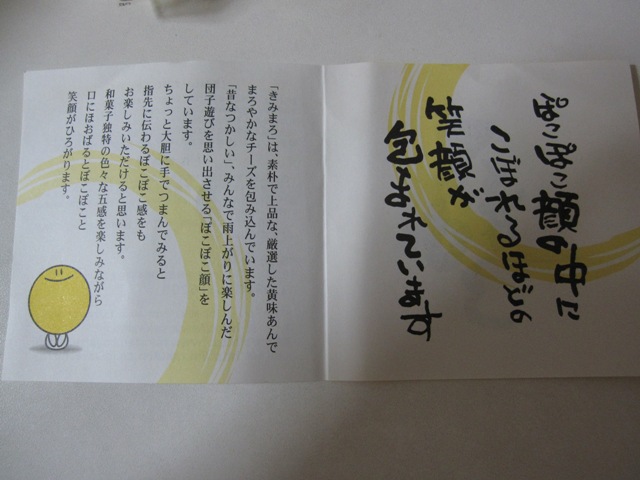 ぽこぽこ顔の中に
こぼれるほどの
笑顔が
包まれています
「きみまろ」は、素朴で上品な、厳選した黄味あんで
まろやかなチーズを包み込んでいます。
「昔なつかしい」、みんなで雨上がりに楽しんだ
団子遊びを思い出させる「ぽこぽこ顔」を
しています。
ちょっと大胆に手でつまんでみると
指先に伝わるぽこぽこ感をも
お楽しみいただけると思います。
和菓子独特の色々な五感を楽しみながら
口にほおばるとぽこぽこと
笑顔がひろがります。